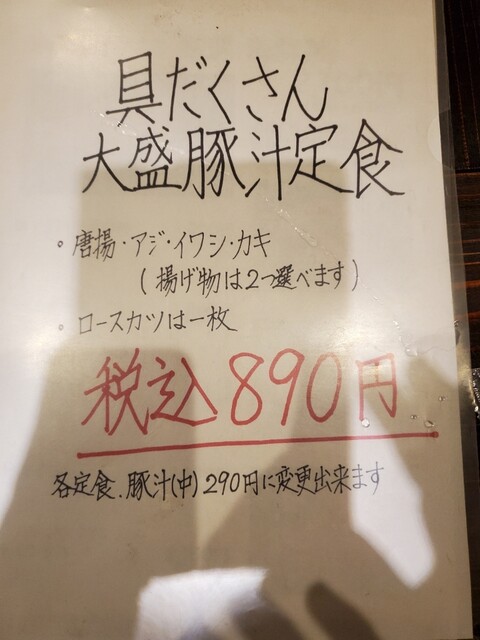 具だくさん
大盛豚汁定食
。唐揚・アジ・イワシ・カキ
(揚げ物は2つ選べます)
。ロースカツは一枚
税込890円
各定食、豚汁(中)290円に変更出来ます